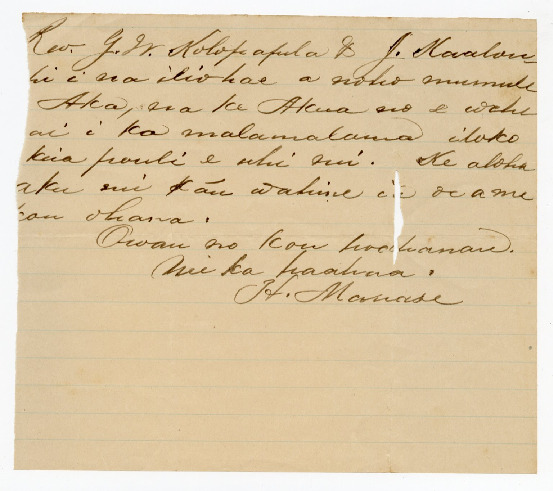 Rev. G. W. Kolopapela & J. Kaalou
hi i na iliohae a noho mumule
Aka, na ke Akua no e wehe
ai i ka malamalama iloko
keia pouli e uhi nui. Ke aloha
aku nei káu wahine ia oe a me
kou ohana.
Owau no kou hoahanau.
ka paahana.
H. Manase